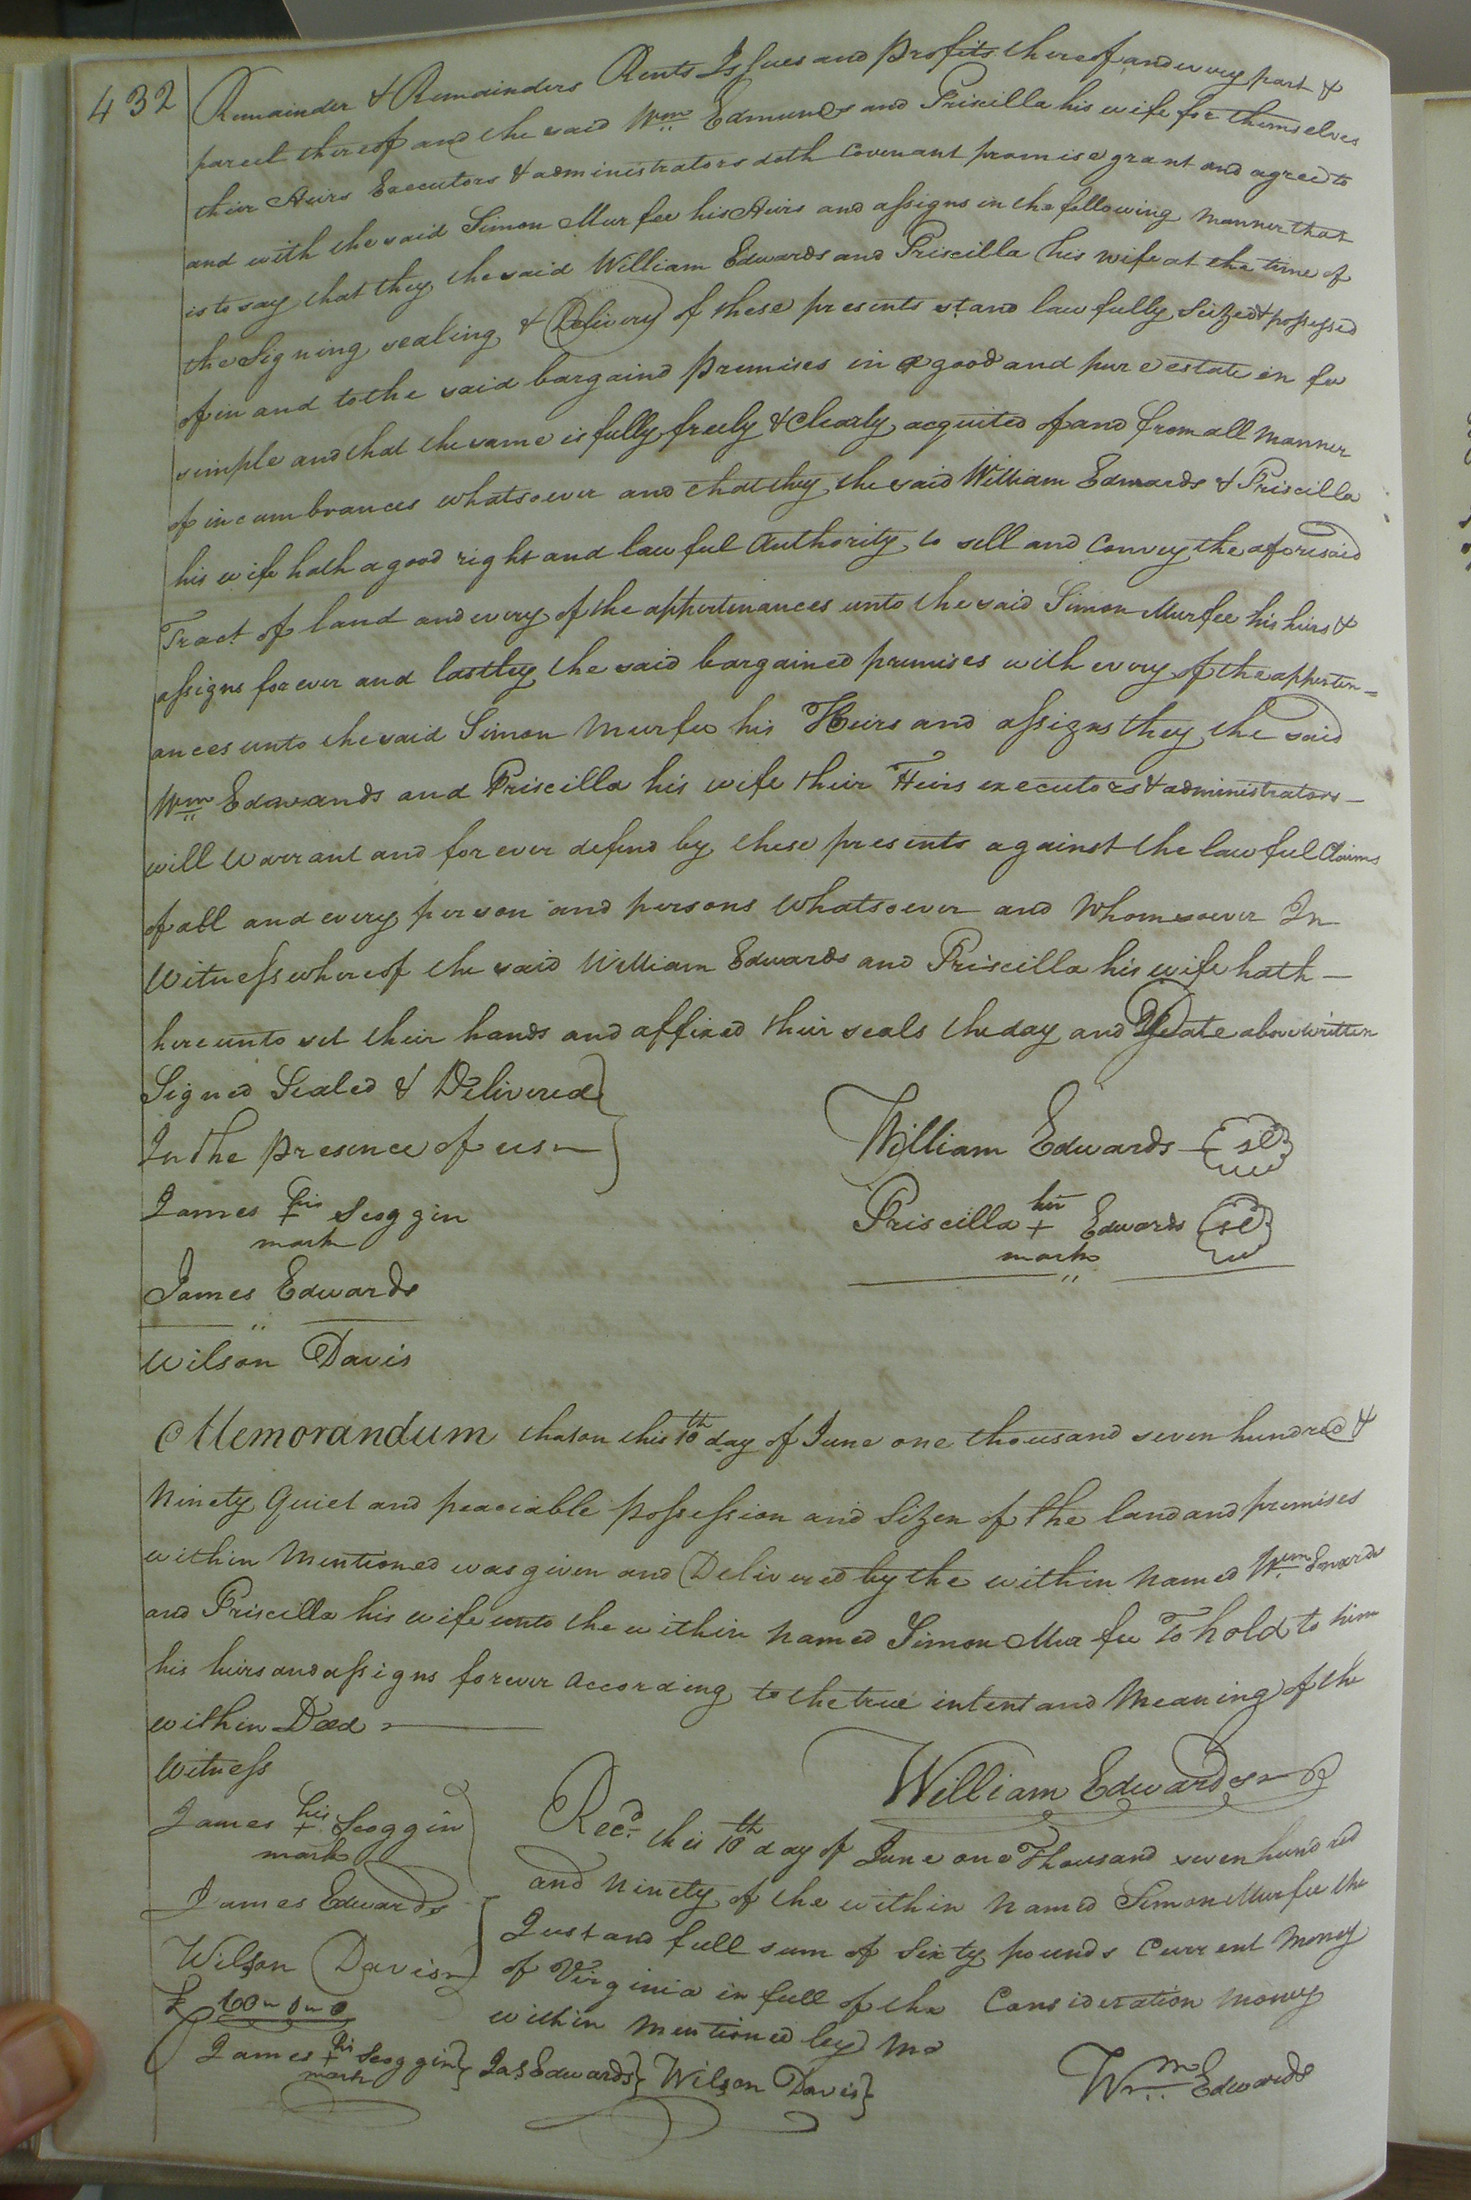 432
Remainder & Remainders Rents Issues and profits thereof and every part &
parcel thereof and the said Wm Edmunds and Priscilla his wife for themselves
their Heirs Executors & administrators doth covenant promise grant and agree to
and with the said Simon Murfee his Heirs and assigns in the following manner that
is to say that they the said William Edwards and Priscilla his wife at the time of
the Signing sealing & Delivery of these presents stand lawfully Seized & possessed
of in and to the said bargaind premises in a good and pure estate in fee
simple and that the same is fully freely & Clearly acquited of and from all manner
of incumbrances whatsoever and that they the said William Edwards & Priscilla
his wife hath a good right and lawful Authority to sell and Convey the aforesaid
Tract of land and every of the appertinances unto the said Simon Murfee his heirs &
assigns forever and lastley the said bargained premises with every of the apperten=
ances unto the said Simon Murfee his Heirs and assigns they the said
Wm Edwards and Priscilla his wife their Heirs executors & administrators
will warrant and forever defend by these presents against the lawful Claims
of all and every person and persons whatsoever and whomsoever In
Witness whereof the said William Edwards and Priscilla his wife hath
hereunto set their hands and affixed their seals the day and Date above written
Signed Sealed & Delivered
In the presence of us
William Edwards sl
James his + mark Scoggin
Priscilla her + mark Edwards sl
James Edwards
Wilson Davis
Memorandum that on this 10th day of June one thousand seven hundred &
Ninety Quiet and peaciable possession and Sizen of the land and premises
within Mentioned was given and Delivered by the within Named Wm Edwards
and Priscilla his wife unto the within Named Simon Murfee To hold to him
his heirs and assigns forever according to the true intent and Meaning of the
within Deed
Witness
William Edwards
James his + mark Scoggin
James Edwards
Wilson Davis
£ 60 0 0
Recd this 10th day of June one Thousand seven hundred
and Ninety of the within Named Simon Murfee the
Just and full sum of Sixty pounds Current Money
of Virginia in full of the Consideration Money
within Mentioned by Me
James his + mark Scoggin Jas Edwards Wilson Davis
Wm Edwards